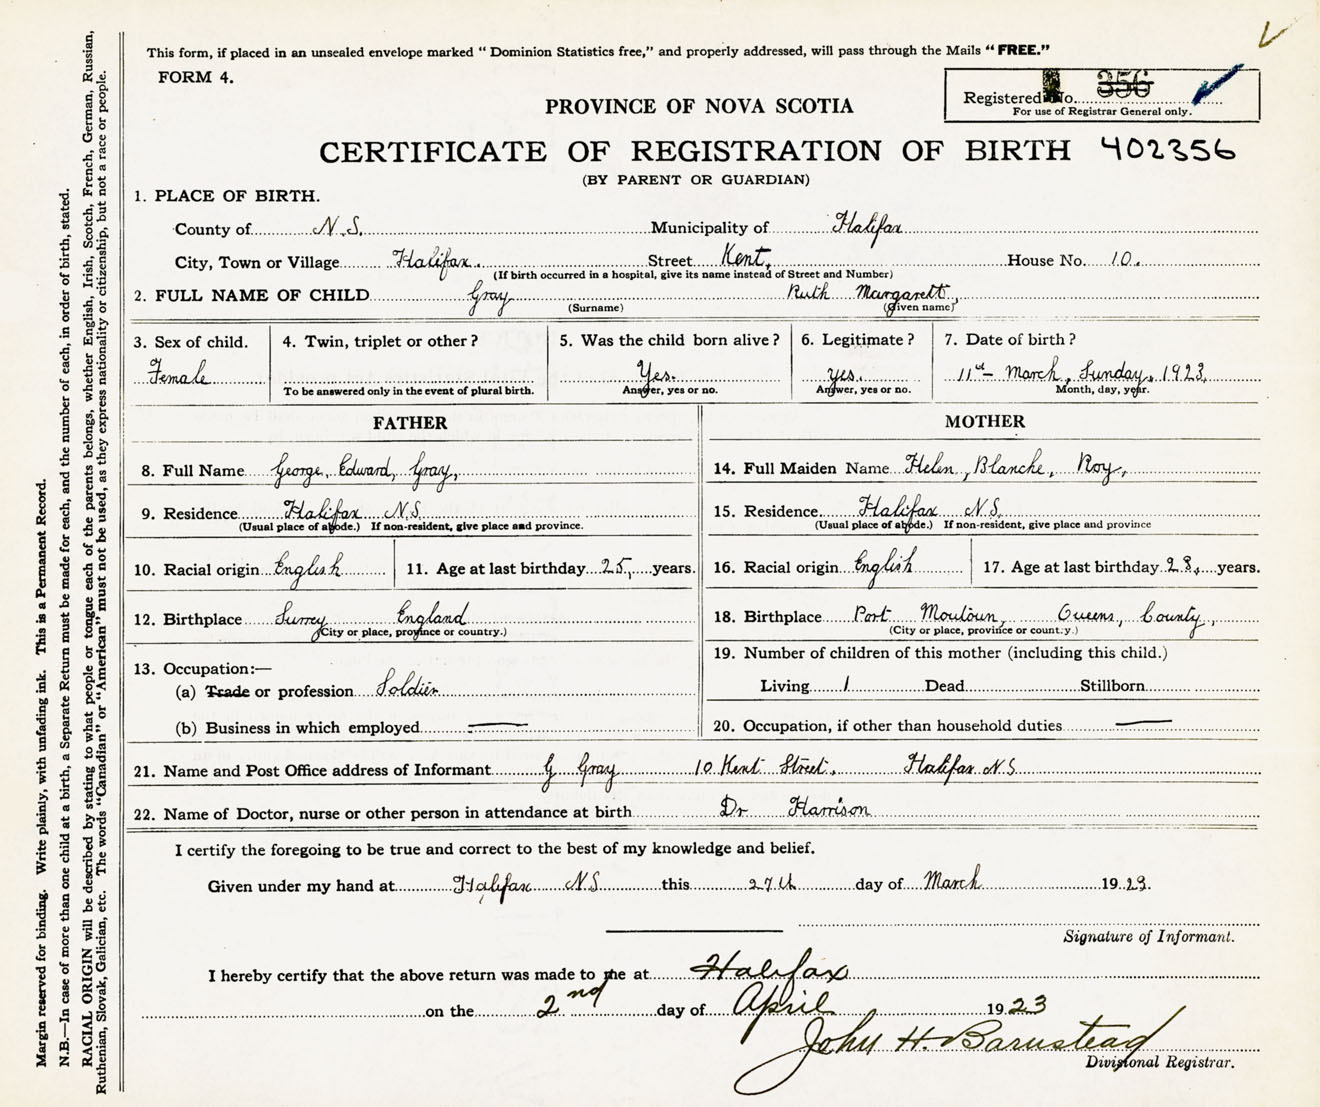 This form, if placed in an unsealed envelope marked "Dominion Statistics free," and properly addressed, will pass through the Mails "FREE."
FORM 4.
Registered No. 356
For use of Registrar General only.
PROVINCE OF NOVA SCOTIA
CERTIFICATE OF REGISTRATION OF BIRTH 402356
(BY PARENT OR GUARDIAN)
1. PLACE OF BIRTH.
County of N.S. Municipality of Halifax
City, Town or Village Halifax. Street Kent, House No. 10.
(If birth occurred in a hospital, give its name instead of Street and Number)
2. FULL NAME OF CHILD Gray Ruth Margarett,
(Surname) (Given name)
3. Sex of child. 4. Twin, triplet or other? 5. Was the child born alive? 6. Legitimate? 7. Date of birth?
Female Yes. yes. 11th March, Sunday, 1923,
To be answered only in the event of plural birth. Answer, yes or no. Answer, yes or no. Month, day, year.
FATHER
8. Full Name George, Edward, Gray,
9. Residence Halifax N.S.
(Usual place of abode.) If non-resident, give place and province.
10. Racial origin English 11. Age at last birthday 25, years.
12. Birthplace Surrey England
(City or place, province or country.)
13. Occupation:—
(a) Trade or profession Soldier
(b) Business in which employed —
MOTHER
14. Full Maiden Name Helen, Blanche, Roy,
15. Residence. Halifax N.S.
(Usual place of abode.) If non-resident, give place and province
16. Racial origin English 17. Age at last birthday 23, years.
18. Birthplace Port Moutoun, Queens, County,
(City or place, province or country.)
19. Number of children of this mother (including this child.)
Living 1 Dead Stillborn
20. Occupation, if other than household duties —
21. Name and Post Office address of Informant G Gray 10 Kent Street, Halifax N.S
22. Name of Doctor, nurse or other person in attendance at birth Dr Harrison
I certify the foregoing to be true and correct to the best of my knowledge and belief.
Given under my hand at Halifax N.S this 27th day of March 1923.
Signature of Informant.
I hereby certify that the above return was made to me at Halifax
on the 2nd day of April 1923
John H. Barnstead
Divisional Registrar.
Margin reserved for binding. Write plainly, with unfading ink. This is a Permanent Record.
N.B.—In case of more than one child at a birth, a Separate Return must be made for each, and the number of each, in order of birth, stated.
RACIAL ORIGIN will be described by stating to what people or tongue each of the parents belongs, whether English, Irish, Scotch, French, German, Russian,
Ruthenian, Slovak, Galician, etc. The words "Canadian" or "American" must not be used, as they express nationality or citizenship, but not a race or people.